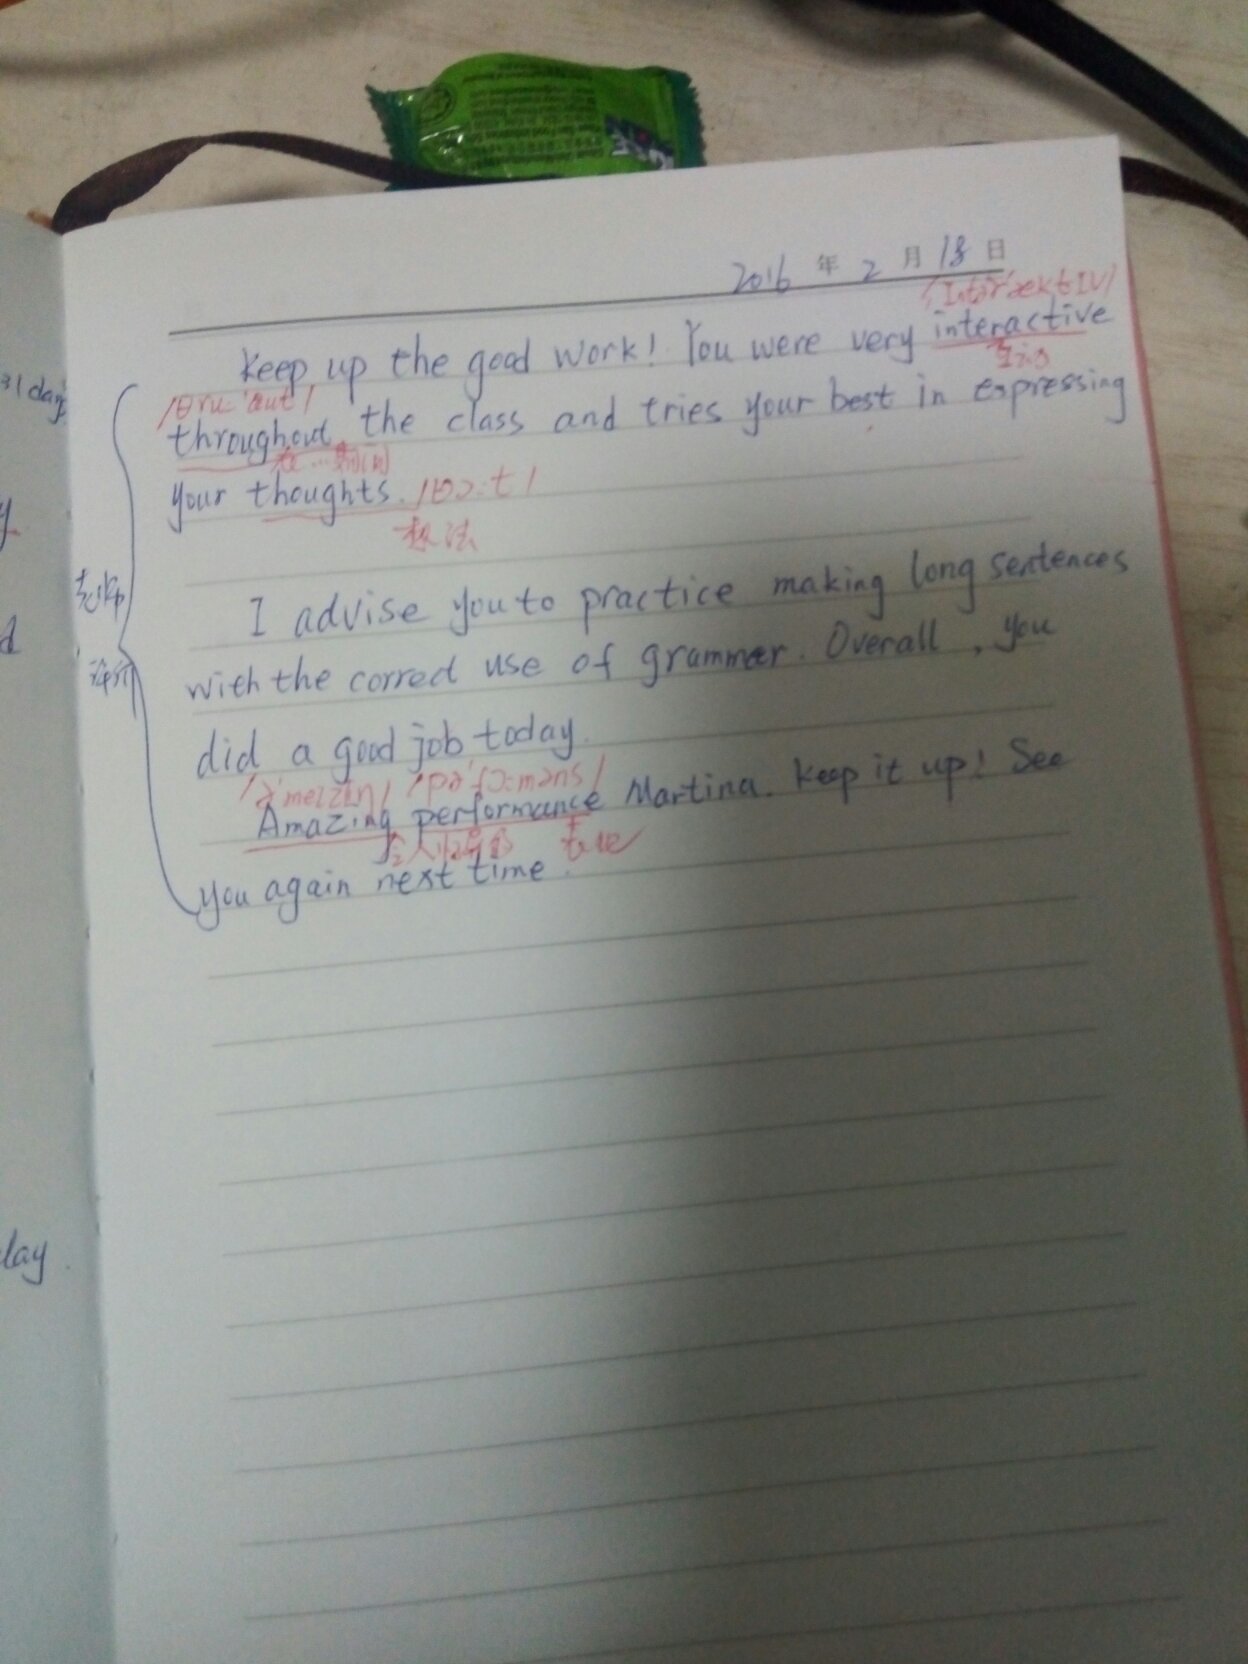 2016 年 2 月 18 日
/ˌɪntərˈæktɪv/
Keep up the good work! You were very interactive
互动
/θruːˈaut/
throughout the class and tries your best in expressing
在…期间
your thoughts. /θɔːt/
想法
I advise you to practice making long sentences
老师
评价
with the correct use of grammer. Overall, you
did a good job today.
/əˈmeɪzɪŋ/ /pəˈfɔːməns/
Amazing performance Martina. Keep it up! See
令人惊异的
you again next time.
31 day
y
d
lay